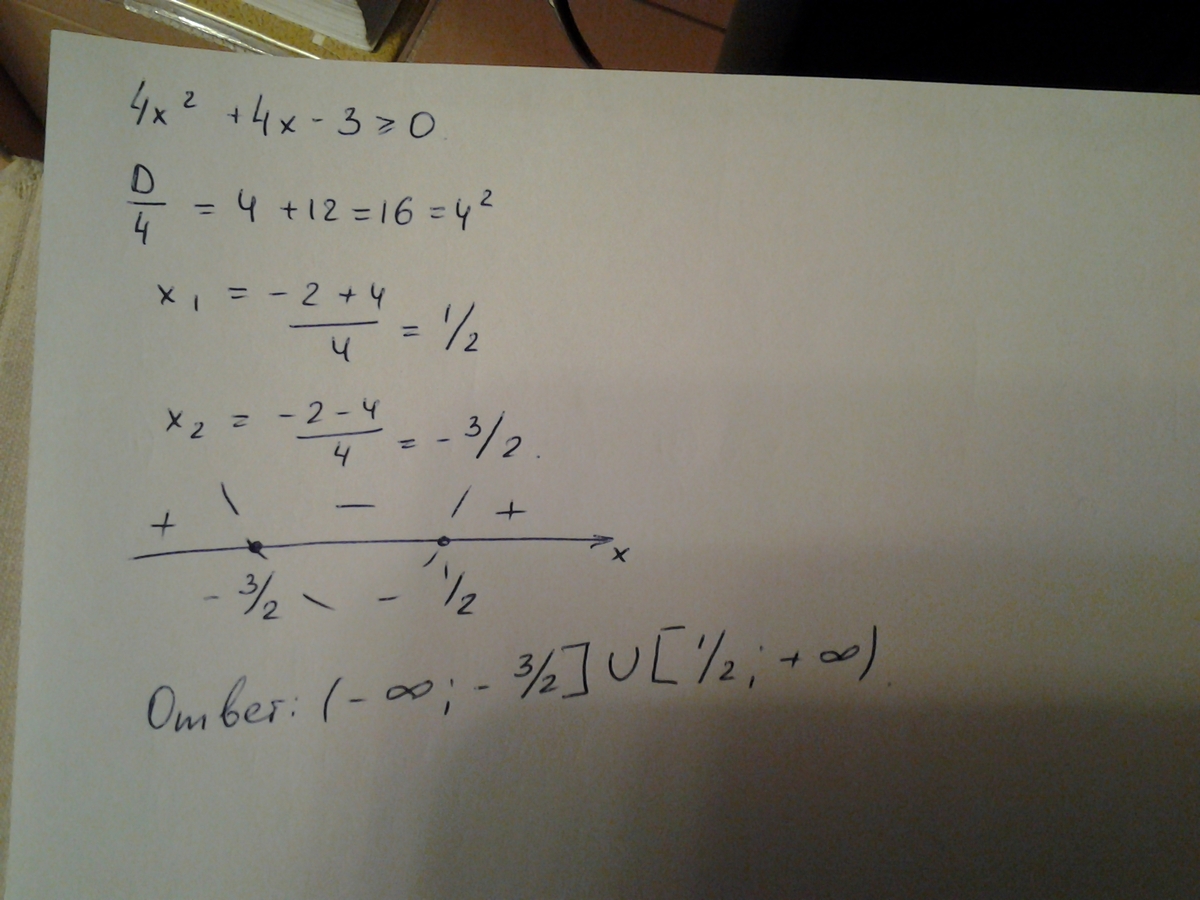 4x² + 4x - 3 ≥ 0.
D/4 = 4 + 12 = 16 = 4²
x₁ = (-2 + 4)/4 = 1/2
x₂ = (-2 - 4)/4 = - 3/2.
+ \ — / +
x
- 3/2 \ - 1/2
Ответ: (-∞; - 3/2] ∪ [1/2; +∞).